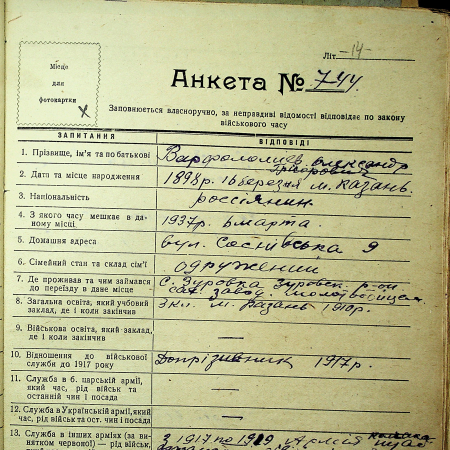 Літ. -14-
Місце
для
фотокартки
Анкета № 744.
Заповнюється власноручно, за неправдиві відомості відповідає по закону
військового часу
ЗАПИТАННЯ
ВІДПОВІДІ
1. Прізвище, ім'я та по батькові
Варфоломиев Олександр
Григорович
2. Дата та місце народження
1898 р. 16 березня м. Казань.
3. Національність
россіянин.
4. З якого часу мешкає в даному місці
1937 р. 6 марта.
5. Домашня адреса
вул. Соснівська 9
6. Сімейний стан та склад сім'ї
одружений
7. Де проживав та чим займався
до переїзду в дане місце
с. Зуровка Зуровск. р-он
сах. завод.
8. Загальна освіта, який учбовий
заклад, де і коли закінчив
3 кл. м. Казань 1910 р.
9. Військова освіта, який заклад,
де і коли закінчив
—
10. Відношення до військової
служби до 1917 року
Допрізивник 1917 р.
11. Служба в б. царській армії,
який час, рід військ та
останній чин і посада
—
12. Служба в Українській армії, який
час, рід військ та ост. чин і посада
—
13. Служба в інших арміях (за винятком
червоної) — рід військ,
З 1917 по 1919